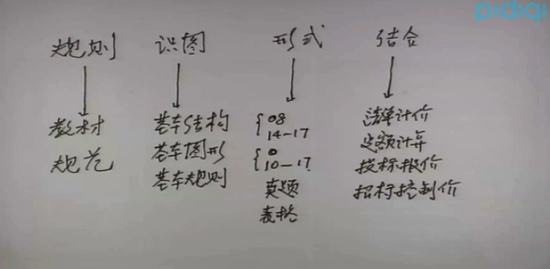 pidiqi
规则 识图 形式 结合
教材
规范
基本结构
基本图形
基本规则
{08
14-17
{0
10-17
真题
表格
清单计价
定额计算
投标报价
招标控制价